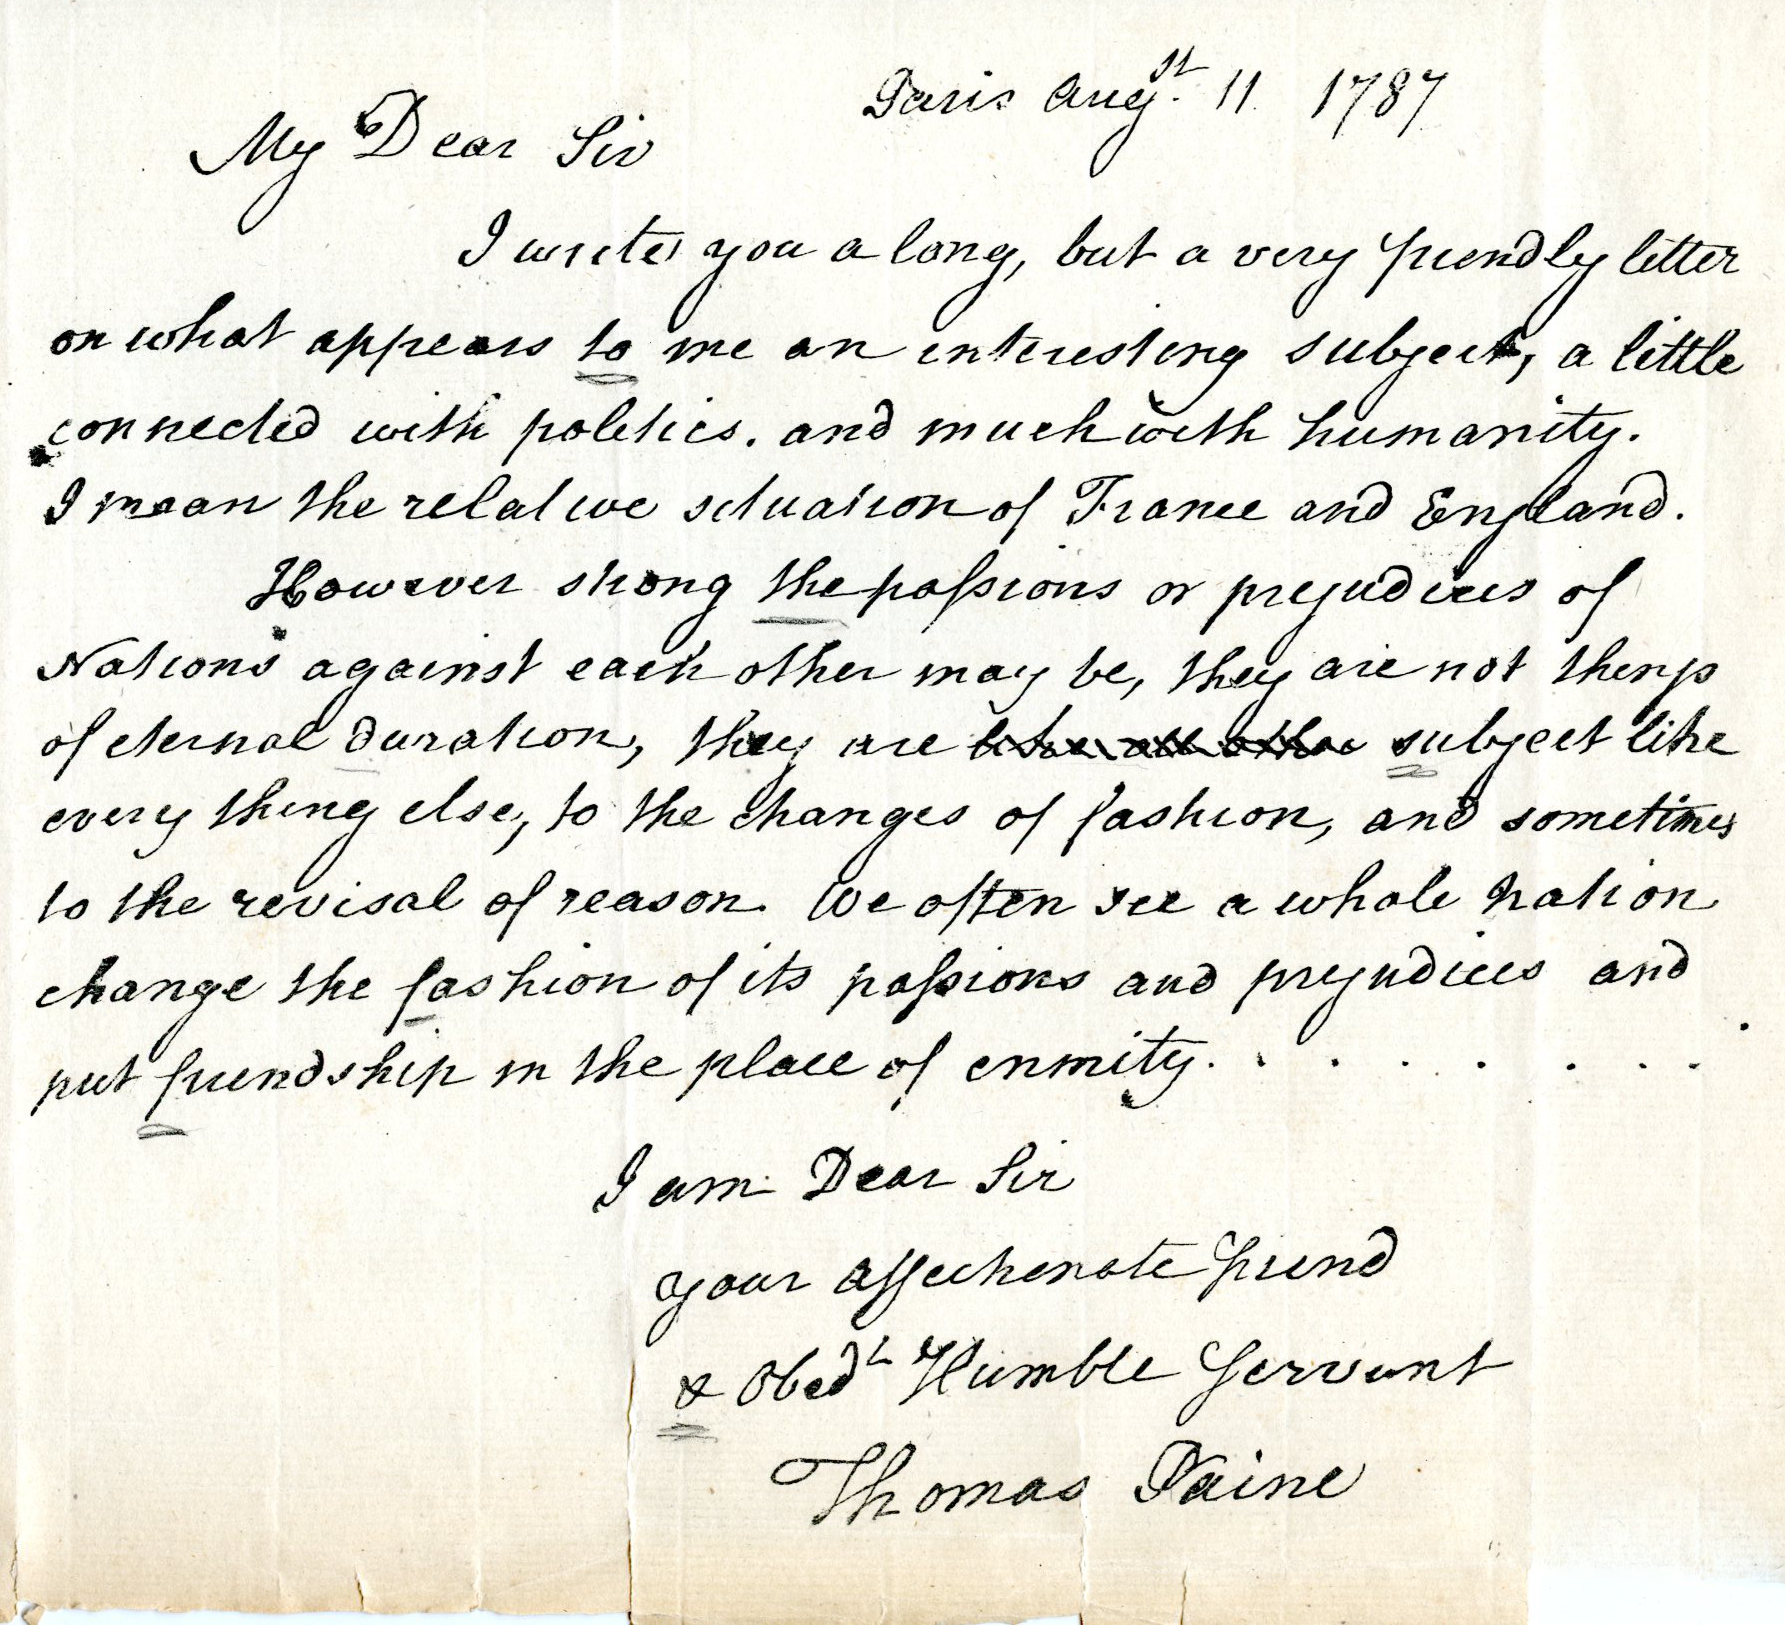 Paris Augst. 11 1787
My Dear Sir
I write you a long, but a very friendly letter
on what appears to me an interesting subject, a little
connected with politics. and much with humanity.
I mean the relative situation of France and England.
However strong the passions or prejudices of
Nations against each other may be, they are not things
of eternal duration, they are like all other subject like
every thing else, to the changes of fashion, and sometimes
to the revisal of reason. We often see a whole Nation
change the fashion of its passions and prejudices and
put friendship in the place of enmity. . . . . . . . .
I am Dear Sir
your affectionate friend
& Obedt Humble Servant
Thomas Paine